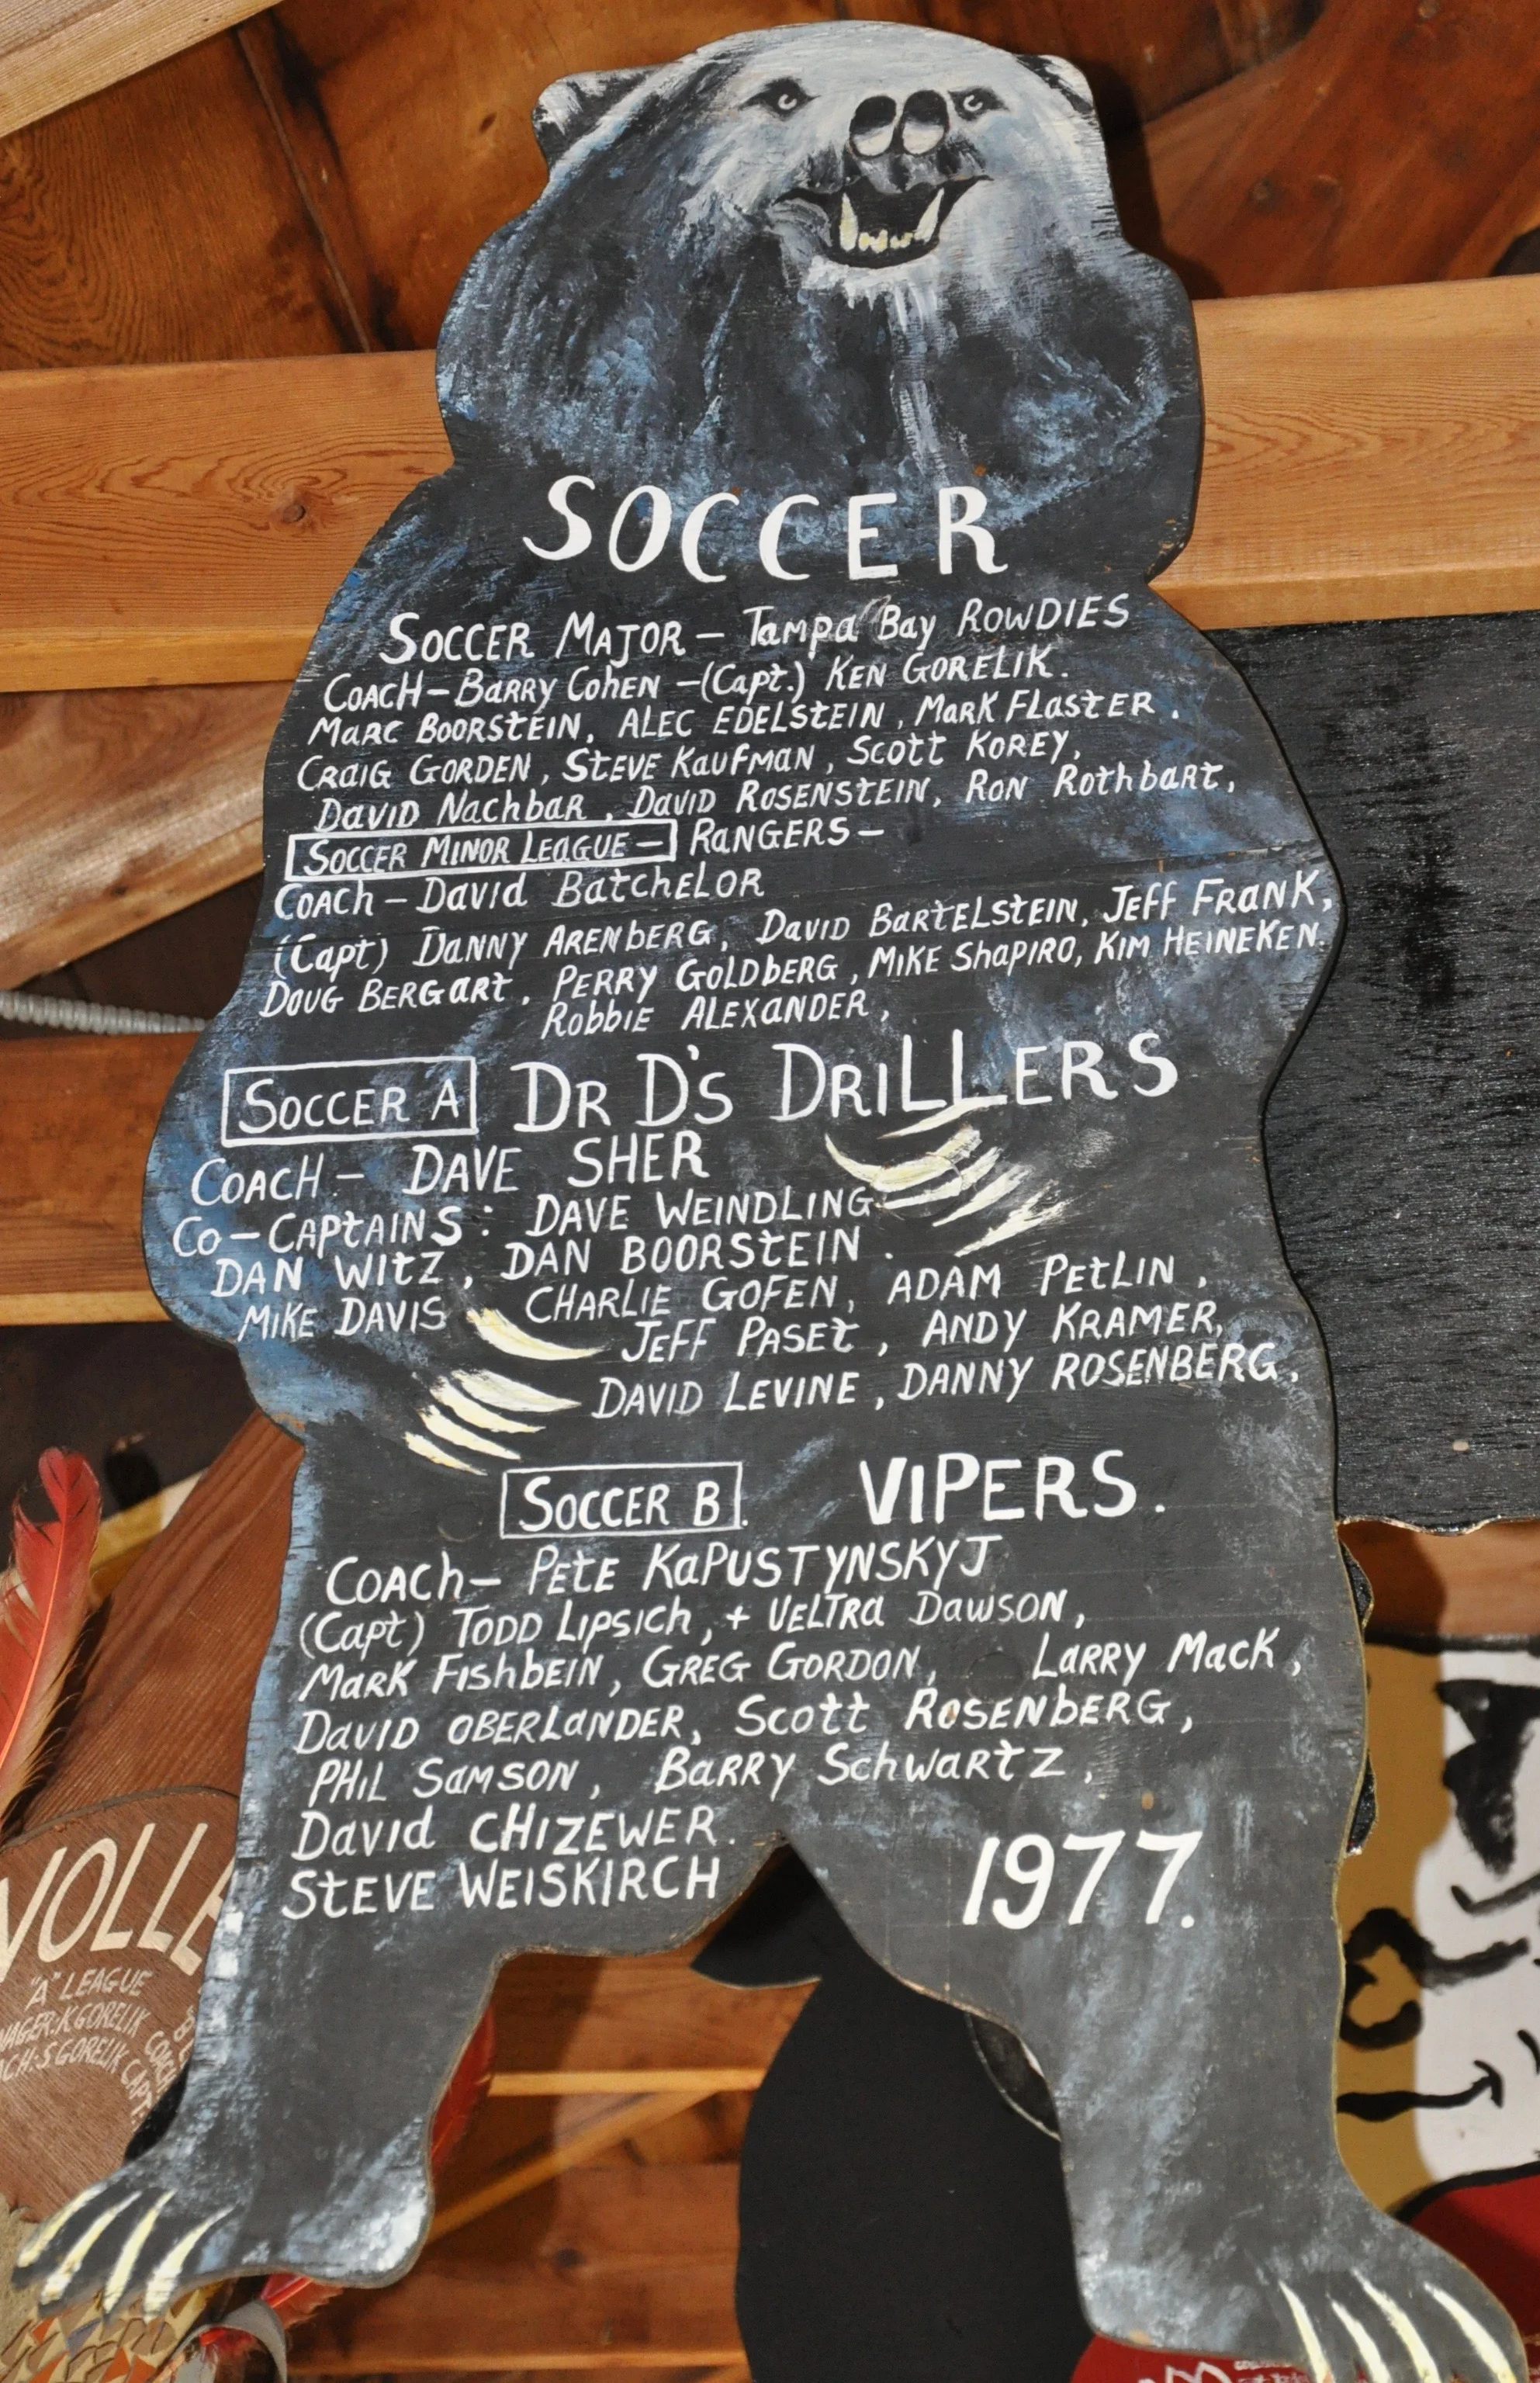 SOCCER
SOCCER MAJOR - Tampa Bay ROWDIES
COACH-BARRY COHEN-(Capt.) KEN GORELIK.
MARC BOORSTEIN, ALEC EDELSTEIN, MARK FLASTER.
CRAIG GORDEN, STEVE KAUFMAN, SCOTT KOREY,
DAVID NACHBAR, DAVID ROSENSTEIN, RON ROTHBART,
SOCCER MINOR LEAGUE- RANGERS-
COACH-DAVID BATCHELOR
(Capt) DANNY ARENBERG, DAVID BARTELSTEIN, JEFF FRANK,
DOUG BERGART, PERRY GOLDBERG, MIKE SHAPIRO, KIM HEINEKEN.
ROBBIE ALEXANDER,
SOCCER A DR D'S DRILLERS
COACH- DAVE SHER
CO-CAPTAINS: DAVE WEINDLING
DAN WITZ, DAN BOORSTEIN.
MIKE DAVIS CHARLIE GOFEN, ADAM PETLIN,
JEFF PASET, ANDY KRAMER,
DAVID LEVINE, DANNY ROSENBERG,
SOCCER B. VIPERS.
COACH- PETE KAPUSTYNSKYJ
(Capt) TODD LIPSICH, + VELTRA DAWSON,
MARK FISHBEIN, GREG GORDON, LARRY MACK,
DAVID OBERLANDER, SCOTT ROSENBERG,
PHIL SAMSON, BARRY SCHWARTZ,
DAVID CHIZEWER.
STEVE WEISKIRCH
1977.
"A" LEAGUE
K GORELIK
S GORELIK CAPT